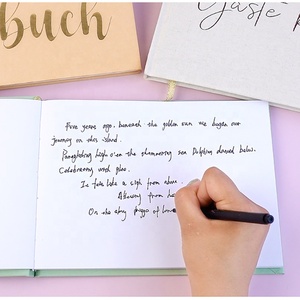 buch
Gäste
Five years ago, beneath the golden sun we began our
journey on this island.
Paragliding high o'er the shimmering sea Dolphins danced below.
Celebrating and glee.
It felt like a sigh from above
Allowing from
On the